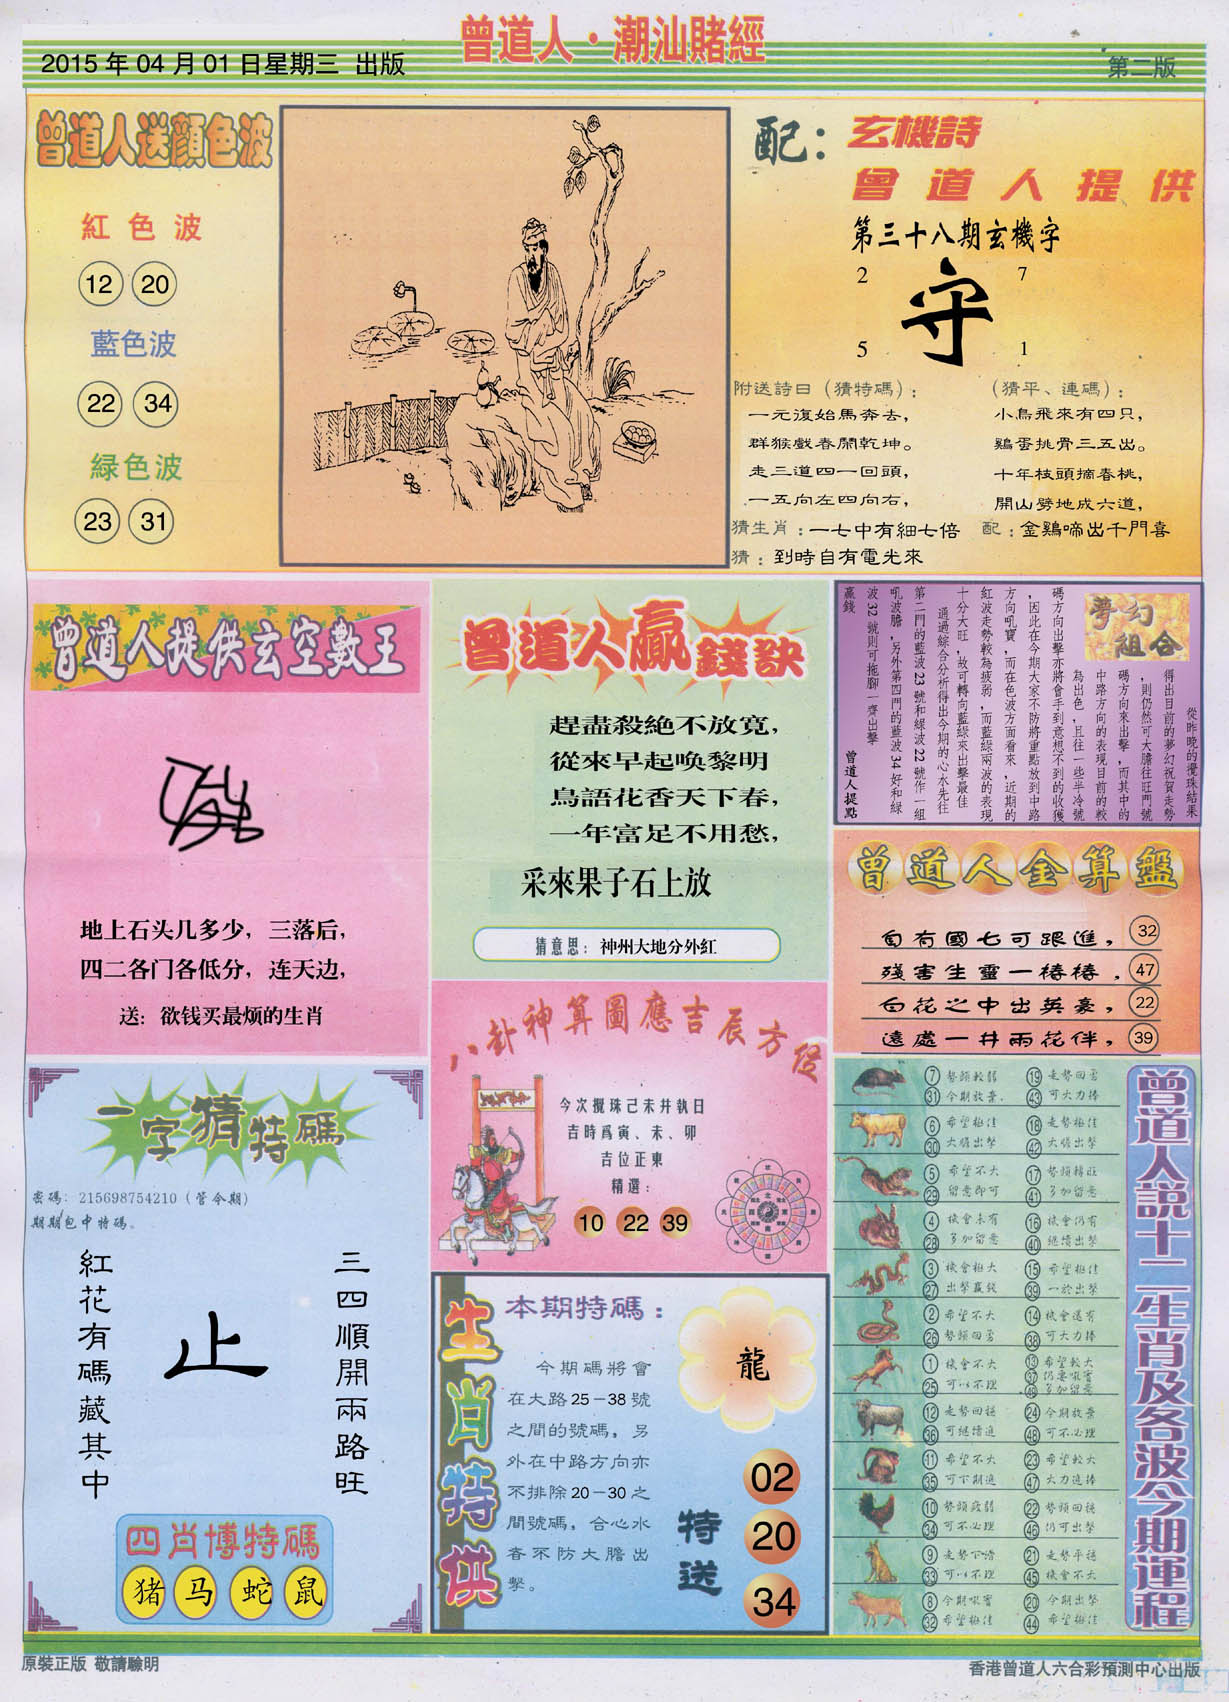 曾道人·潮汕賭經
2015年04月01日星期三 出版
第二版
曾道人送顔色波
紅色波
12 20
藍色波
22 34
緑色波
23 31
配：玄機詩
曾道人提供
第三十八期玄機字
2 7
守
5 1
附送詩曰（猜特碼）：
一元復始馬奔去，
群猴戲春鬧乾坤。
走三道四一回頭，
一五向左四向右，
（猜平、連碼）：
小鳥飛來有四只，
鷄蛋挑骨三五出。
十年枝頭摘春桃，
開山劈地成六道，
猜生肖：一七中有細七倍 配：金鷄啼出千門喜
猜：到時自有電光來
曾道人提供玄空數王
地上石头几多少，三落后，
四二各门各低分，连天边，
送：欲钱买最烦的生肖
曾道人贏錢訣
趕盡殺絶不放寬，
從來早起喚黎明
鳥語花香天下春，
一年富足不用愁，
采來果子石上放
猜意思：神州大地分外紅
夢幻
組合
從昨晚的攪珠結果
得出目前的夢幻祝賀走勢
，則仍然可大膽往旺門號
碼方向來出擊，而其中的
中路方向的表現目前的較
為出色，且往一些半冷號
碼方向出擊亦將會手到意想不到的收獲
，因此在今期大家不防將重點放到中路
方向吼寶，而在色波方面看來，近期的
紅波走勢較為疲弱，而藍綠兩波的表現
十分大旺，故可轉向藍綠來出擊最佳
通過綜合分析得出今期的心水先往
第二門的藍波23號和綠波22號作一組
吼波膽，另外第四門的藍波34好和綠
波32號則可拖腳一齊出擊
贏錢
曾道人提點
曾道人金算盤
旬有國七可跟進， 32
殘害生靈一樁樁， 47
白花之中出英豪， 22
遠處一井兩花伴， 39
八卦神算圖應吉辰方位
今次攪珠己未井執日
吉時爲寅、未、卯
吉位正東
精選：
10 22 39
一字猜特碼
密碼：215698754210（管今期）
期期包中特碼。
三四順開兩路旺
止
紅花有碼藏其中
四肖博特碼
猪 马 蛇 鼠
生肖特供
本期特碼：
龍
今期碼將會
在大路25－38號
之間的號碼，另
外在中路方向亦
不排除20－30之
間號碼，合心水
者不防大膽出
擊。
特送
02
20
34
曾道人説十二生肖及各波今期運程
7 勢頭較弱 19 走勢回勇
31 今期放棄 43 可大力捧
6 希望極佳 18 走勢極佳
30 大膽出擊 42 大膽出擊
5 希望不大 17 勢頭轉旺
29 留意即可 41 多加留意
4 機會未有 16 機會仍有
28 多加留意 40 繼續出擊
3 機會極大 15 希望極佳
27 出擊贏錢 39 一於出擊
2 希望不大 14 機會還有
26 勢頭回勇 38 可大力捧
1 機會不大 13 希望較大
25 可以不理 37 仍要吸實
49 多加留意
12 走勢回穩 24 今期放棄
36 可繼續追 48 可不必理
11 希望不大 23 希望較大
35 可下期追 47 大力追捧
10 勢頭疲弱 22 勢頭回穩
34 可不必理 46 仍可出擊
9 走勢下滑 21 走勢平穩
33 可以不理 45 機會不大
8 今期吸實 20 今期出擊
32 希望極佳 44 希望極佳
原裝正版 敬請驗明
香港曾道人六合彩預測中心出版